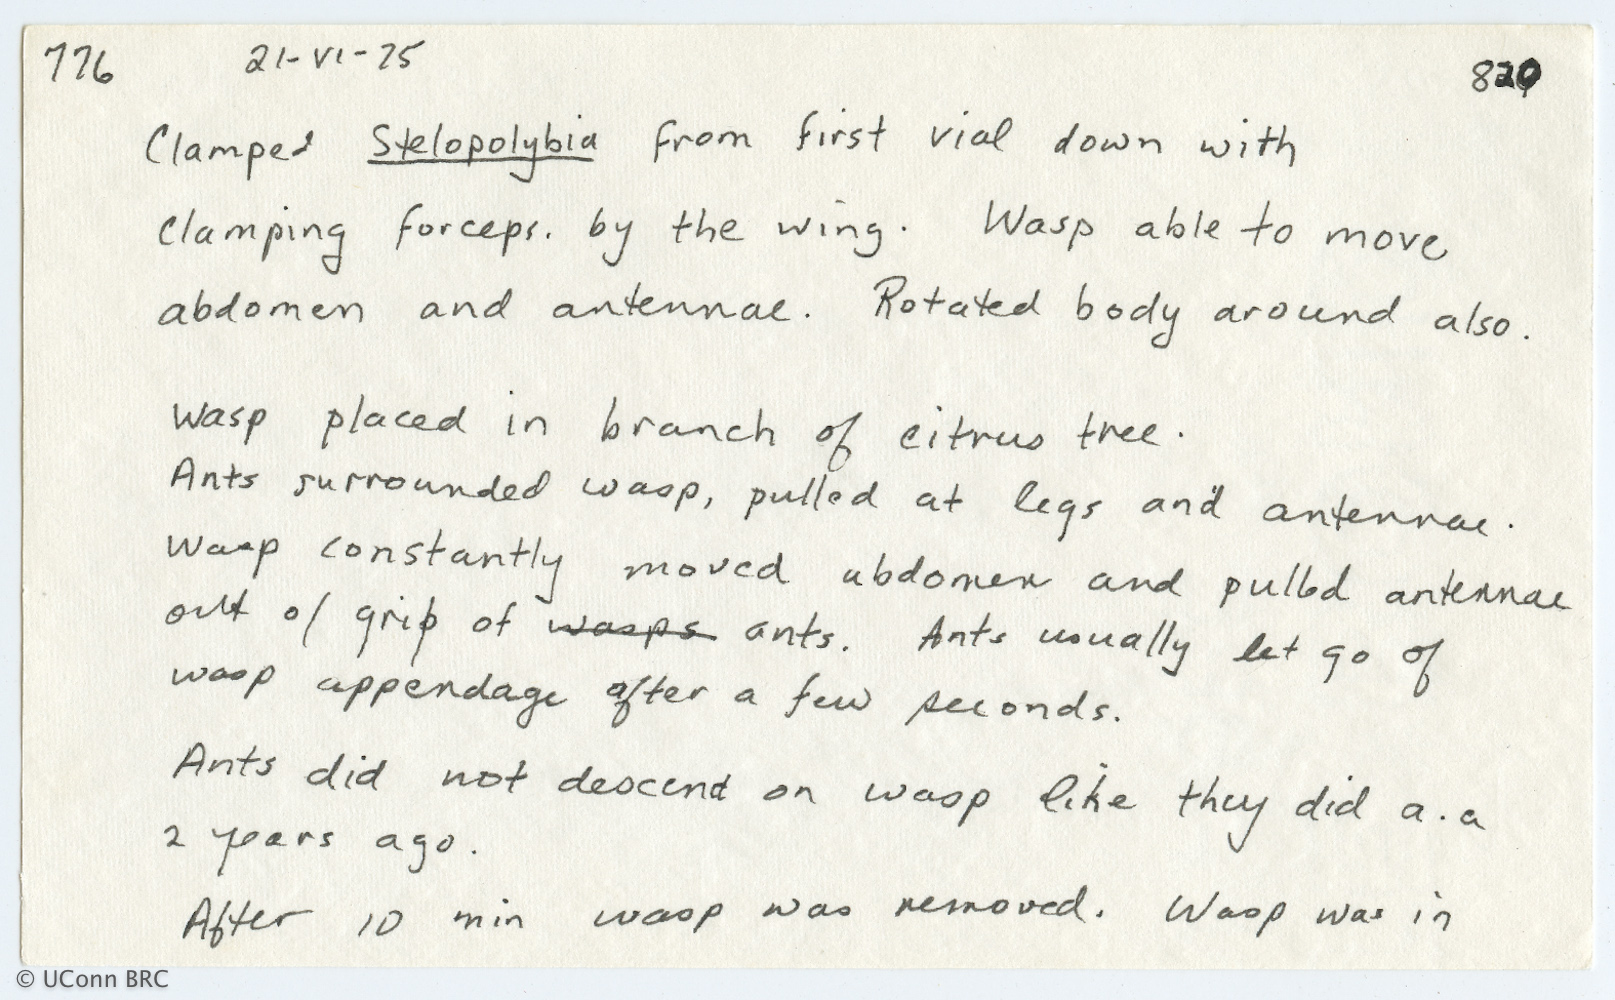 776 21-VI-75 820
Clamped Stelopolybia from first vial down with
clamping forceps. by the wing. Wasp able to move
abdomen and antennae. Rotated body around also.
Wasp placed in branch of citrus tree.
Ants surrounded wasp, pulled at legs and antennae.
Wasp constantly moved abdomen and pulled antennae
out of grip of wasps ants. Ants usually let go of
wasp appendage after a few seconds.
Ants did not descend on wasp like they did a.a
2 years ago.
After 10 min wasp was removed. Wasp was in
© UConn BRC